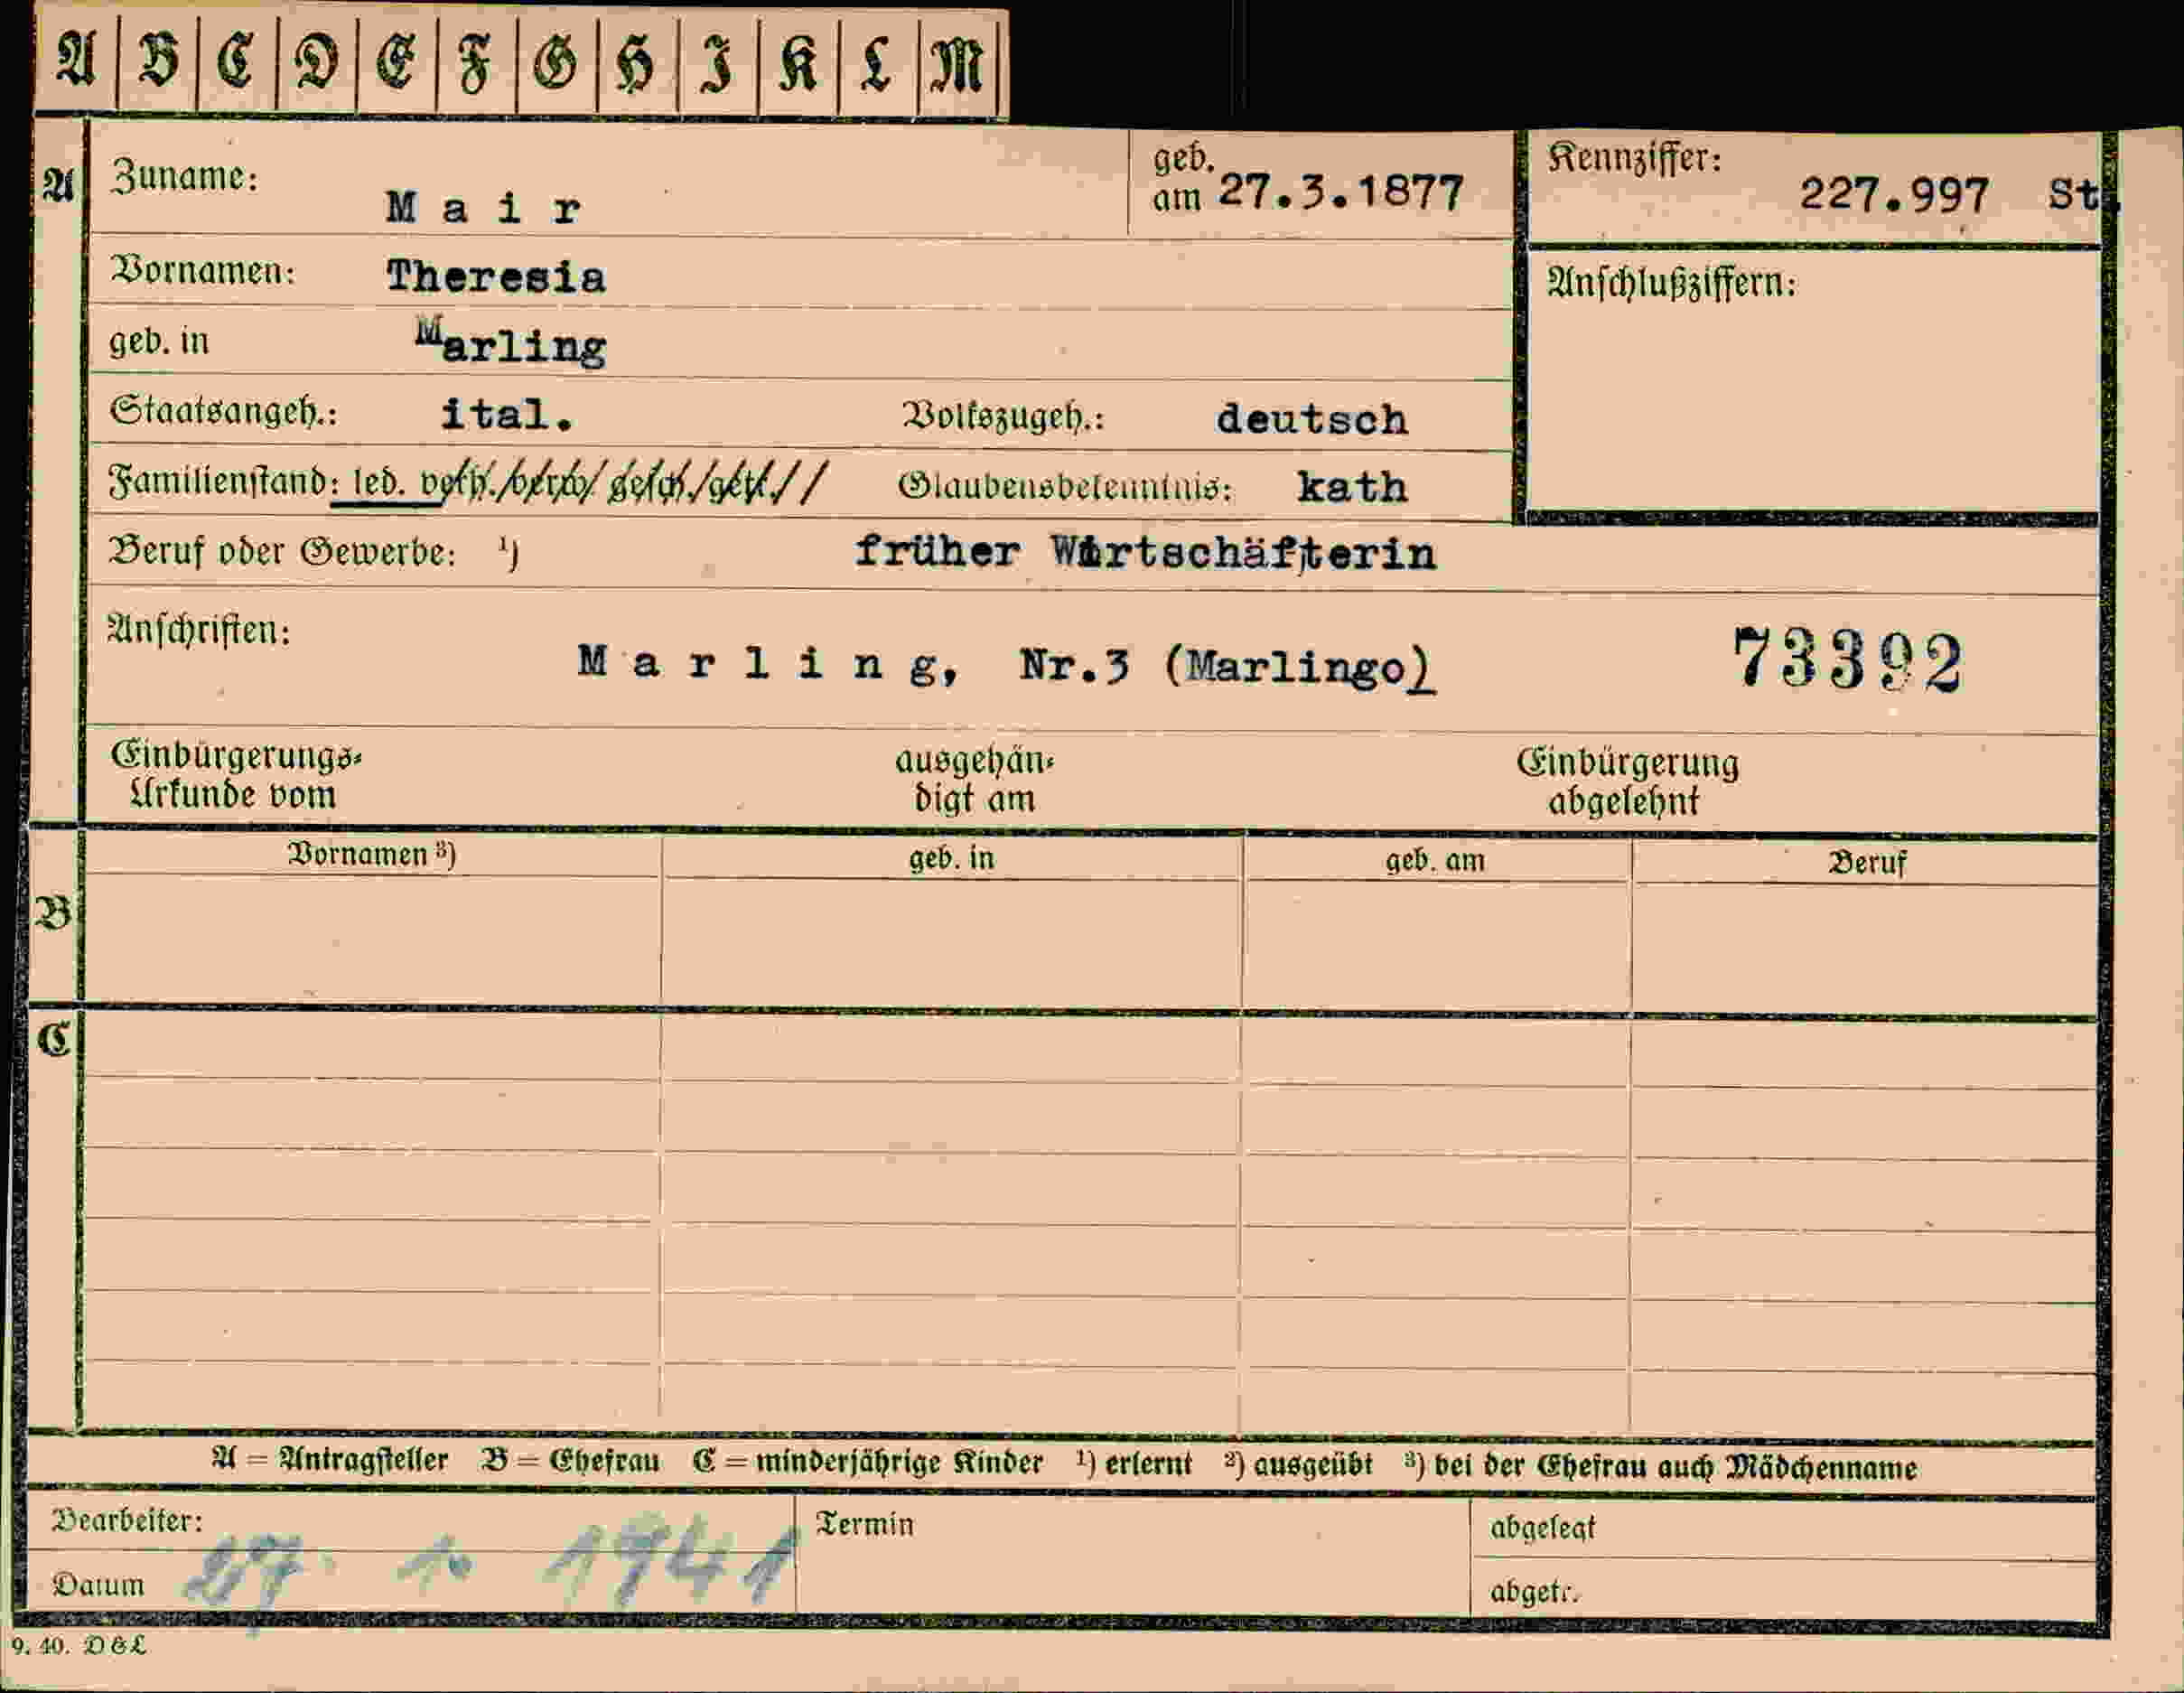 A B C D E F G H I K L M
A Zuname: Mair geb. am 27.3.1877 Kennziffer: 227.997 St.
Vornamen: Theresia Anschlußziffern:
geb. in Marling
Staatsangeh.: ital. Volkszugeh.: deutsch
Familienstand: led. verh./verw./gesch./getr.// Glaubensbekenntnis: kath
Beruf oder Gewerbe: ¹) früher Wirtschäfterin
Anschriften: Marling, Nr.3 (Marlingo) 73392
Einbürgerungs- ausgehän- Einbürgerung
Urkunde vom digt am abgelehnt
Vornamen ³) geb. in geb. am Beruf
B
C
A = Antragsteller B = Ehefrau C = minderjährige Kinder ¹) erlernt ²) ausgeübt ³) bei der Ehefrau auch Mädchenname
Bearbeiter: Termin abgelegt
Datum 27. 1. 1941 abgetr.
9. 40. DGL